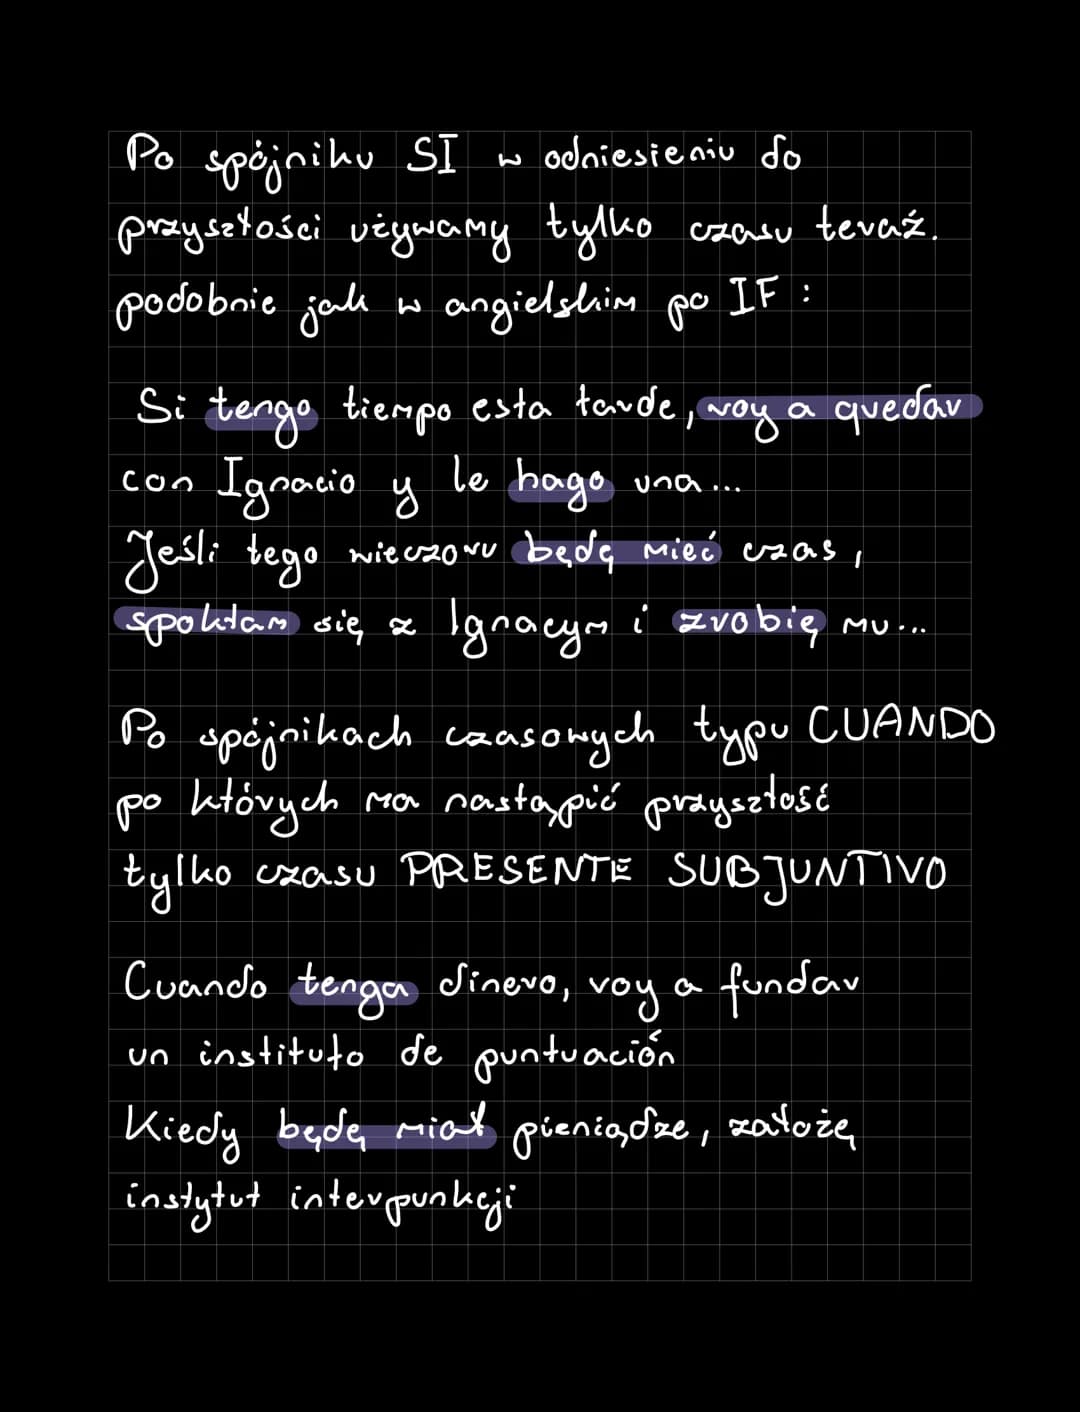 Po spójniku SI w odniesieniu do
przyszłości używamy tylko czasu teraź.
podobnie jak w angielskim po IF :
Si tengo tiempo esta tarde, voy a quedar
con Ignacio y le hago una...
Jeśli tego wieczoru będę mieć czas,
spoktam się z Ignacym i zrobię mu...
Po spójnikach czasowych typu CUANDO
po których ma nastąpić przyszłość
tylko czasu PRESENTE SUBJUNTIVO
Cuando tenga dinero, voy a fundar
un instituto de puntuación
Kiedy będę miał pieniądze, założę
instytut interpunkcji